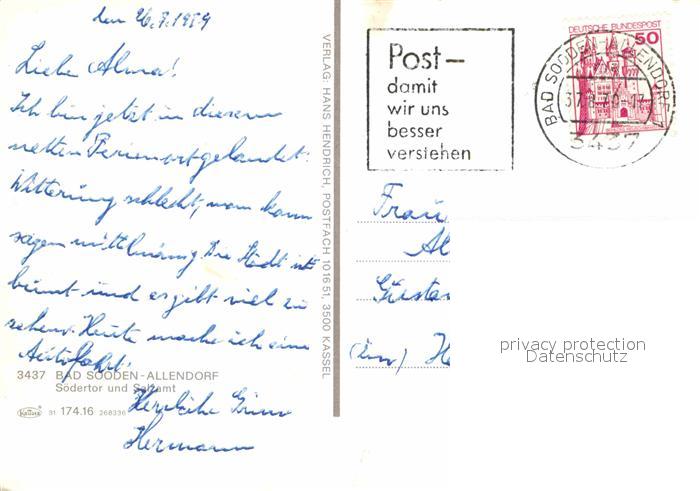 den 26.9.1979
Liebe Alma!
Ich bin jetzt in diesem
netten Ferienort gelandet.
Witterung schlecht, man kann
sagen mittelmäsig. Die Stadt ist
bunt und es gibt viel zu
sehen. Heute mache ich eine
Autofahrt.
3437 BAD SOODEN-ALLENDORF
Södertor und Salzamt
Kahrig 31 174.16 268336
Herzliche Grüsse
Hermann
VERLAG: HANS HENDRICH, POSTFACH 101651, 3500 KASSEL
Post –
damit
wir uns
besser
verstehen
DEUTSCHE BUNDESPOST
50
BAD SOODEN-ALLENDORF 1
3437
Frau
Al
Gustav
H
privacy protection
Datenschutz